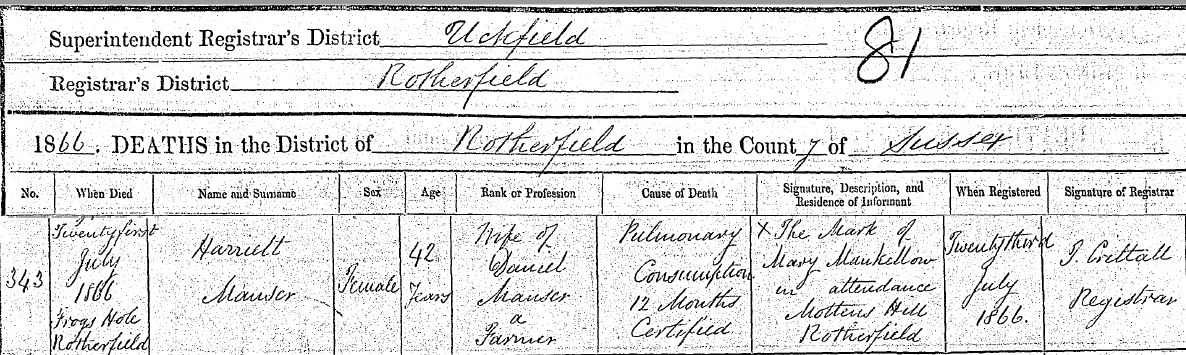 Superintendent Registrar's District Uckfield
81
Registrar's District Rotherfield
1866. DEATHS in the District of Rotherfield in the County of Sussex
No. When Died Name and Surname Sex Age Rank or Profession Cause of Death Signature, Description, and Residence of Informant When Registered Signature of Registrar
343
Twenty first
July
1866
Frogs Hole
Rotherfield
Harriett
Manser
Female
42
Years
Wife of
Daniel
Manser
a
Farmer
Pulmonary
Consumption
12 Months
Certified
X The Mark of
Mary Mankellow
in attendance
Mottens Hill
Rotherfield
Twenty third
July
1866.
Crittall
Registrar